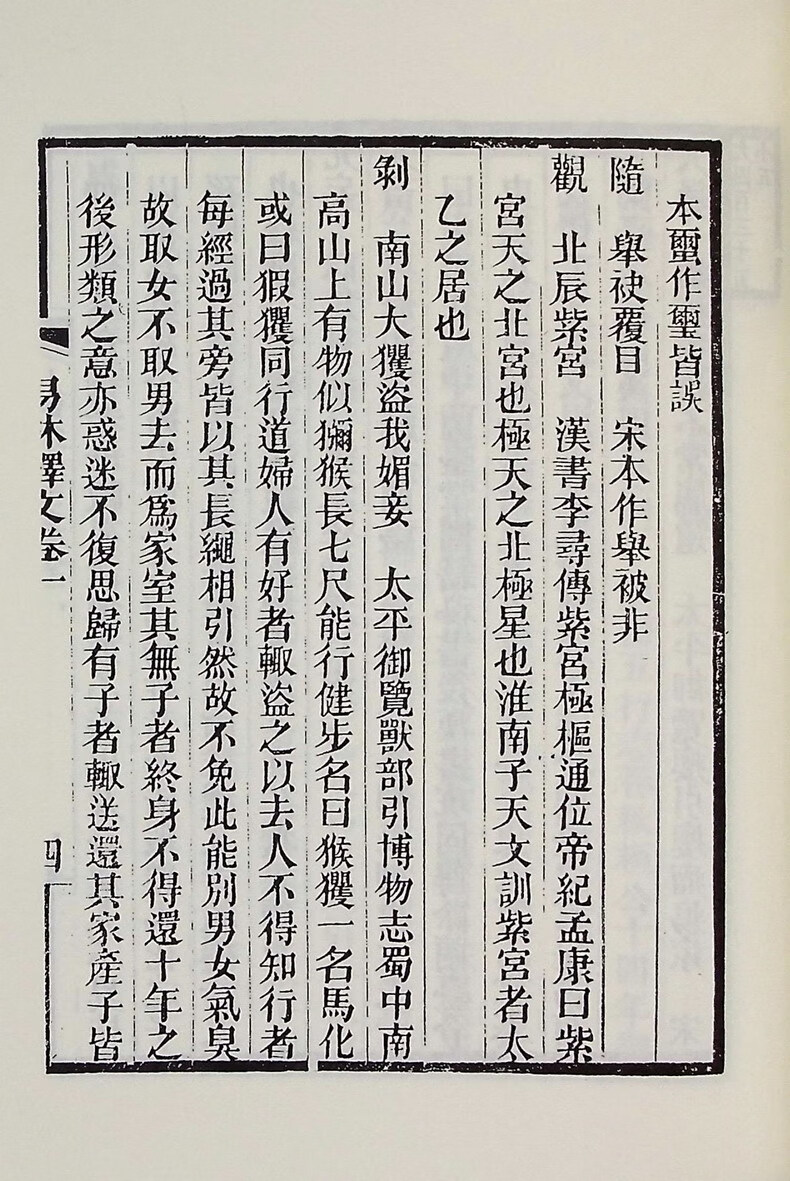 本壐作璽皆誤
隨　舉袂覆目　宋本作舉被非
觀　北辰紫宮　漢書李尋傳紫宮極樞通位帝紀孟康曰紫
宮天之北宮也極天之北極星也淮南子天文訓紫宮者太
乙之居也
剝　南山大玃盜我媚妾　太平御覽獸部引博物志蜀中南
高山上有物似獼猴長七尺能行健步名曰猴玃一名馬化
或曰猳玃同行道婦人有好者輙盜之以去人不得知行者
每經過其旁皆以其長繩相引然故不免此能別男女氣臭
故取女不取男去而爲家室其無子者終身不得還十年之
後形類之意亦惑迷不復思歸有子者輙送還其家產子皆
易林釋文卷一
四